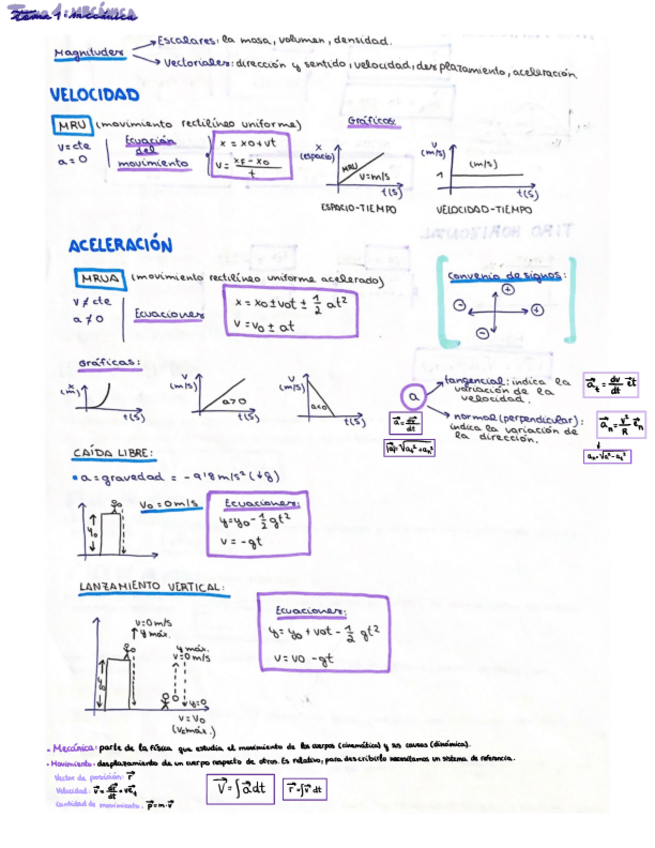 Tema 1: Mecánica
Magnitudes
Escalares: la masa, volumen, densidad.
Vectoriales: dirección y sentido, velocidad, desplazamiento, aceleración
VELOCIDAD
MRU (movimiento rectilíneo uniforme)
v=cte
a=0
Ecuación del movimiento
x = x0+vt
v= xf-x0 / t
Gráficos:
x (espacio)
MRU
v=m/s
t(s)
ESPACIO-TIEMPO
v (m/s)
(m/s)
1
t(s)
VELOCIDAD-TIEMPO
TIRO HORIZONTAL
ACELERACIÓN
MRUA (movimiento rectilíneo uniforme acelerado)
v≠cte
a≠0
Ecuaciones
x = x0 ± v0t ± 1/2 at²
v = v0 ± at
Convenio de signos:
+
- +
-
Gráficas:
x (m)
t(s)
v (m/s)
a>0
t(s)
v (m/s)
a<0
t(s)
a
tangencial: indica la variación de la velocidad.
a⃗t = dv/dt e⃗t
normal (perpendicular): indica la variación de la dirección.
a⃗n = v²/R e⃗n
a⃗ = dv⃗/dt
|a⃗|=√at²+an²
an=√a²-at²
CAÍDA LIBRE:
• a = gravedad = -9'8 m/s² (↓g)
y0
v0 = 0 m/s
Ecuaciones:
y=y0-1/2 gt²
v = -gt
LANZAMIENTO VERTICAL:
v=0m/s
↑y máx.
y0
y máx.
v=0m/s
y=0
v = v0
(v=máx.)
Ecuaciones:
y= y0 + v0t - 1/2 gt²
v= v0 -gt
• Mecánica: parte de la física que estudia el movimiento de los cuerpos (cinemática) y sus causas (dinámica).
• Movimiento: desplazamiento de un cuerpo respecto de otros. Es relativo, para describirlo necesitamos un sistema de referencia.
Vector de posición: r⃗
Velocidad: v⃗ = dr⃗/dt = ve⃗t
Cantidad de movimiento: p⃗=m·v⃗
v⃗ = ∫a⃗ dt
r⃗ = ∫v⃗ dt